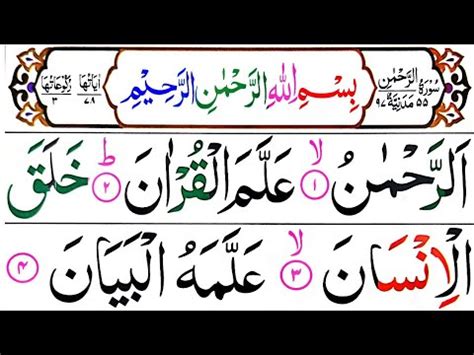 سُوْرَةُ الرَّحْمٰنِ ٥٥ مَدَنِيَّةٌ ٩٧
بِسْمِ اللّٰهِ الرَّحْمٰنِ الرَّحِيْمِ
اٰيَاتُهَا ٧٨ رُكُوْعَاتُهَا ٣
اَلرَّحْمٰنُ ۙ ١ عَلَّمَ الْقُرْاٰنَ ؕ ٢ خَلَقَ
الْاِنْسَانَ ۙ ٣ عَلَّمَهُ الْبَيَانَ ٤